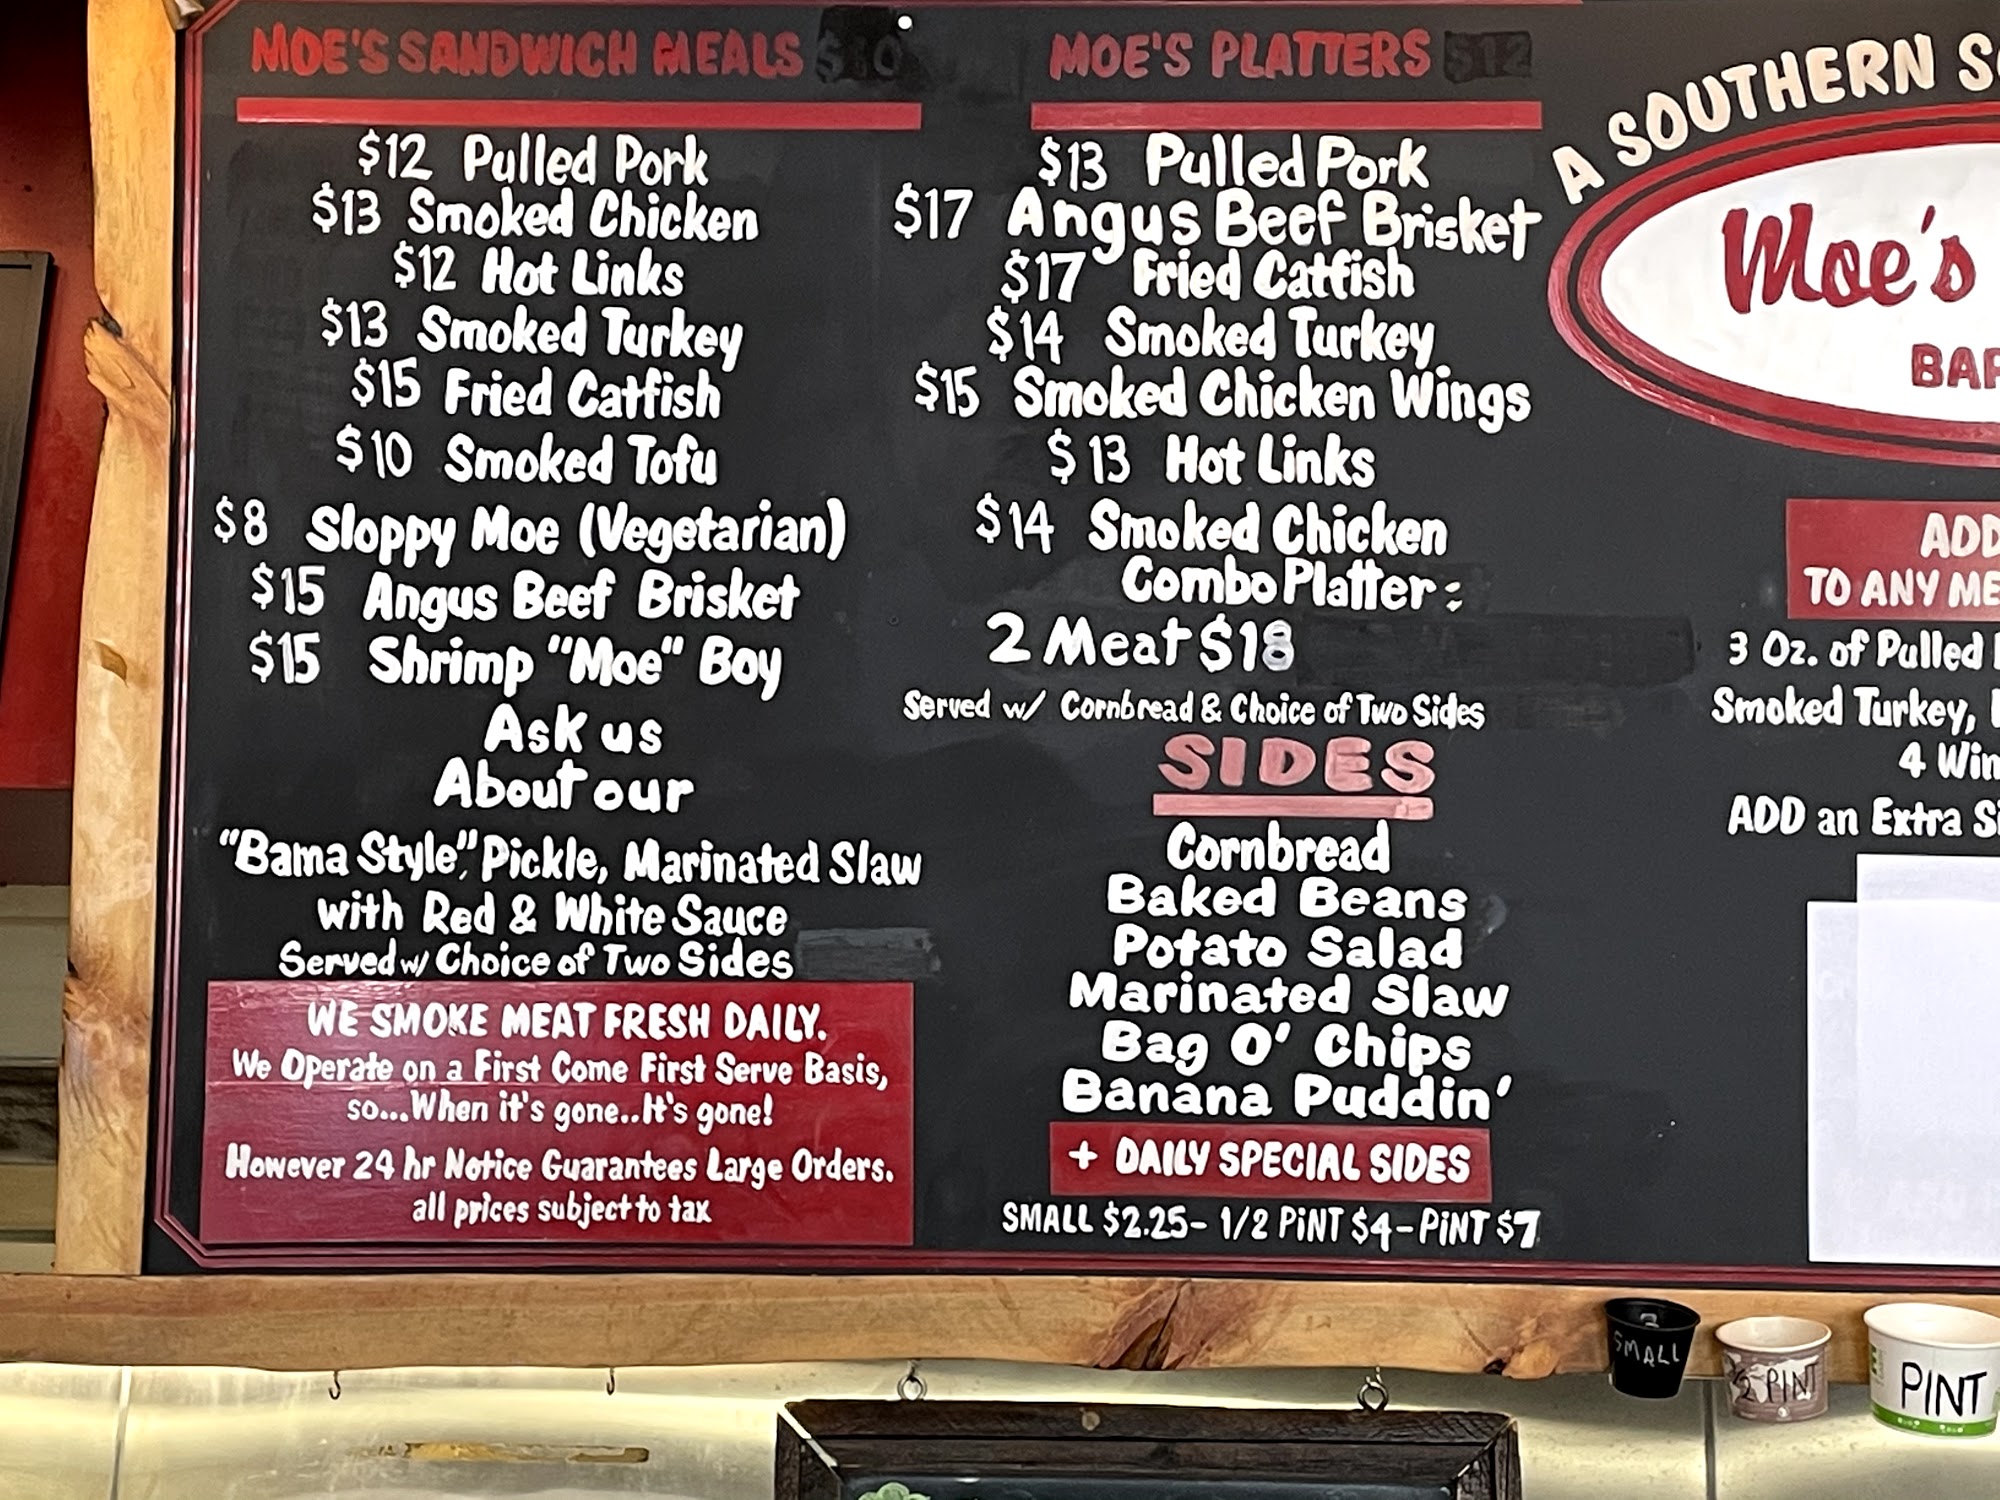 MOE'S SANDWICH MEALS $10
$12 Pulled Pork
$13 Smoked Chicken
$12 Hot Links
$13 Smoked Turkey
$15 Fried Catfish
$10 Smoked Tofu
$8 Sloppy Moe (Vegetarian)
$15 Angus Beef Brisket
$15 Shrimp "Moe" Boy
Ask us
About our
"Bama Style", Pickle, Marinated Slaw
with Red & White Sauce
Served w/ Choice of Two Sides
WE SMOKE MEAT FRESH DAILY.
We Operate on a First Come First Serve Basis,
so...When it's gone..It's gone!
However 24 hr Notice Guarantees Large Orders.
all prices subject to tax
MOE'S PLATTERS $12
$13 Pulled Pork
$17 Angus Beef Brisket
$17 Fried Catfish
$14 Smoked Turkey
$15 Smoked Chicken Wings
$13 Hot Links
$14 Smoked Chicken
Combo Platter:
2 Meat $18
Served w/ Cornbread & Choice of Two Sides
SIDES
Cornbread
Baked Beans
Potato Salad
Marinated Slaw
Bag O' Chips
Banana Puddin'
+ DAILY SPECIAL SIDES
SMALL $2.25- 1/2 PiNT $4-PiNT $7
A SOUTHERN
Moe's
ADD
TO ANY
3 Oz. of Pulled
Smoked Turkey,
4
ADD an Extra
SMALL
1/2 PINT
PINT